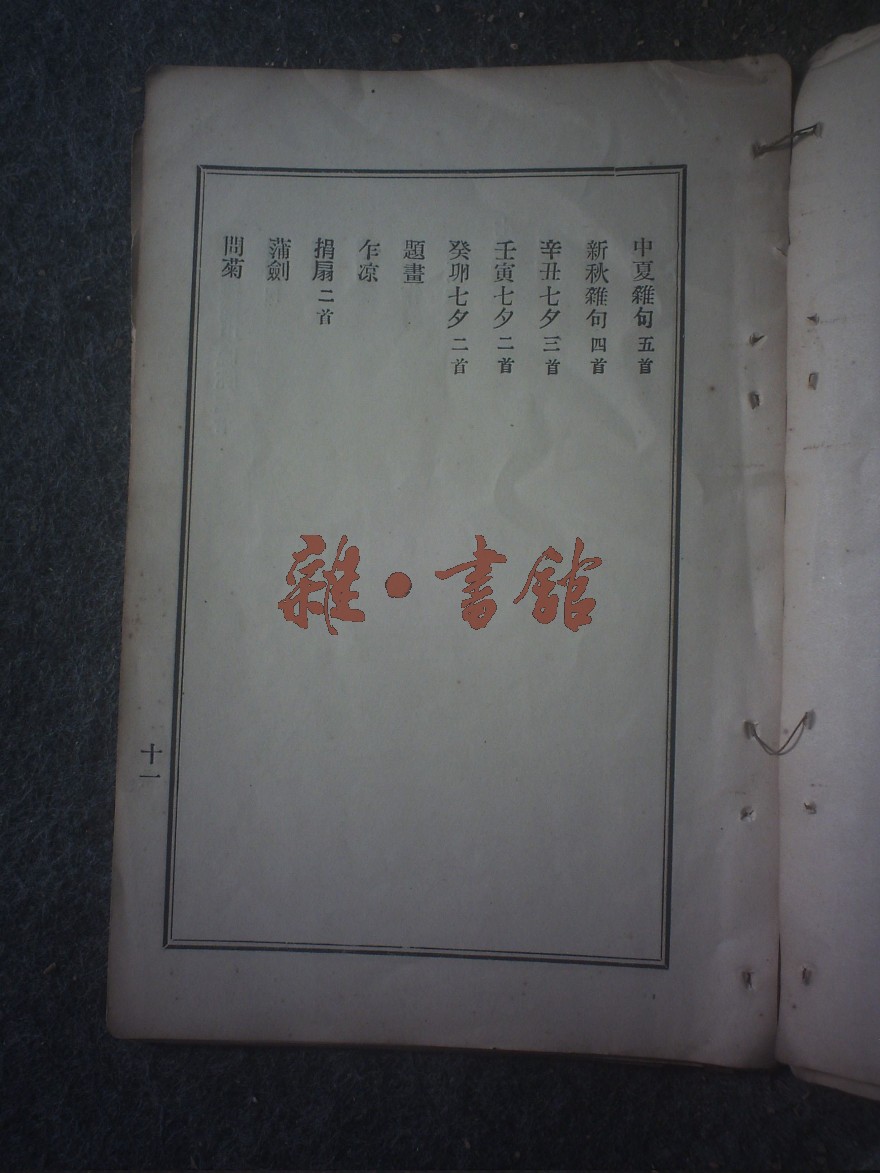 中夏雜句五首
新秋雜句四首
辛丑七夕三首
壬寅七夕二首
癸卯七夕二首
題畫
乍凉
捐扇二首
蒲劍
問菊
十一
雜·書館